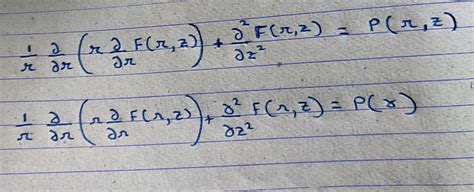 1/r ∂/∂r (r ∂/∂r F(r,z)) + ∂²/∂z² F(r,z) = P(r,z)
1/r ∂/∂r (r ∂/∂r F(r,z)) + ∂²/∂z² F(r,z) = P(r)